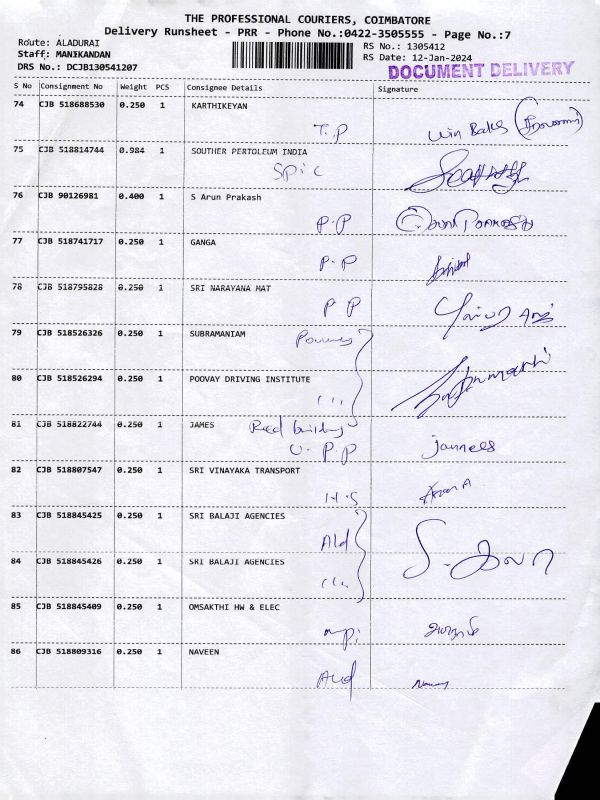 THE PROFESSIONAL COURIERS, COIMBATORE
Delivery Runsheet - PRR - Phone No.:0422-3505555 - Page No.:7
Route: ALADURAI RS No.: 1305412
Staff: MANIKANDAN RS Date: 12-Jan-2024
DRS No.: DCJB130541207 DOCUMENT DELIVERY
S No Consignment No Weight PCS Consignee Details Signature
74 CJB 518688530 0.250 1 KARTHIKEYAN
T.P Win Bakes
75 CJB 518814744 0.984 1 SOUTHER PERTOLEUM INDIA
SPIC
76 CJB 90126981 0.400 1 S Arun Prakash
P.P
77 CJB 518741717 0.250 1 GANGA
P.P
78 CJB 518795828 0.250 1 SRI NARAYANA MAT
P P
79 CJB 518526326 0.250 1 SUBRAMANIAM
80 CJB 518526294 0.250 1 POOVAY DRIVING INSTITUTE
81 CJB 518822744 0.250 1 JAMES Red building
U. P.P jannees
82 CJB 518807547 0.250 1 SRI VINAYAKA TRANSPORT
H.S
83 CJB 518845425 0.250 1 SRI BALAJI AGENCIES
Ald
84 CJB 518845426 0.250 1 SRI BALAJI AGENCIES
85 CJB 518845409 0.250 1 OMSAKTHI HW & ELEC
86 CJB 518809316 0.250 1 NAVEEN
Ald